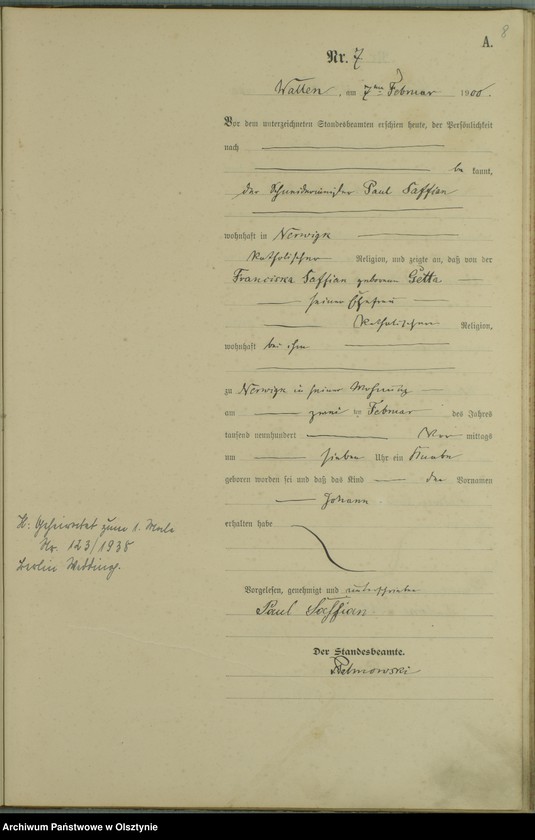 8
A.
Nr. 7
Watten, am 7ten Februar 1900.
Vor dem unterzeichneten Standesbeamten erschien heute, der Persönlichkeit
nach
be kannt,
der Schneidermeister Paul Saffian
wohnhaft in Nerwigk
katholischer Religion, und zeigte an, daß von der
Franciska Saffian geborenen
seiner Ehefrau
katholischer Religion,
wohnhaft bei ihm
zu Nerwigk in seiner Wohnung
am zwei ten Februar des Jahres
tausend neunhundert Vor mittags
um sieben Uhr ein Knabe
geboren worden sei und daß das Kind den Vornamen
Johann
erhalten habe
Vorgelesen, genehmigt und unterschrieben
Paul Saffian
Der Standesbeamte.
K: Geheiratet zum 1. Male
Nr. 123/1935
Berlin Wedding.
Archiwum Państwowe w Olsztynie